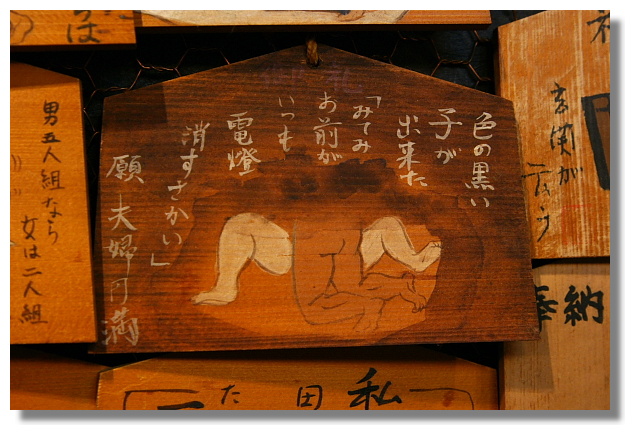 色の黒い
子が
出来た
「みてみ
お前が
いつも
電燈
消すさかい」
願 夫婦円満
男五人組なら
女は二人組
奉納
私
田
た
そば
玄関が